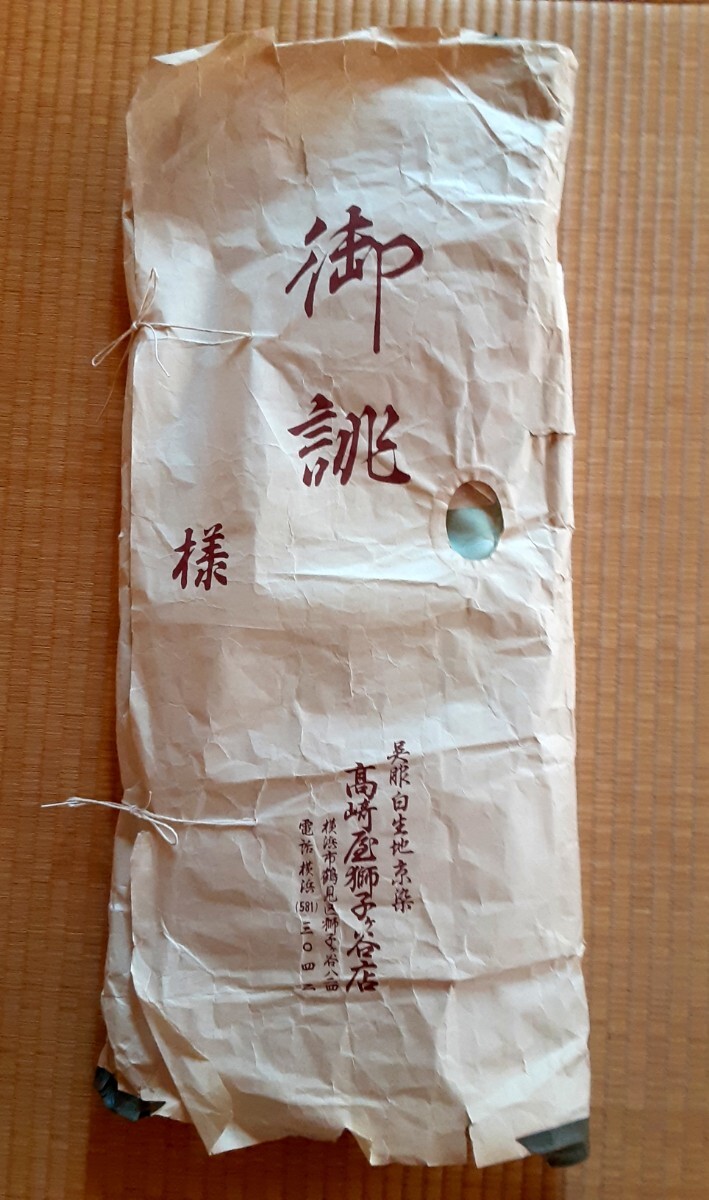 御誂
様
呉服白生地京染
高﨑屋獅子ヶ谷店
横浜市鶴見区獅子ヶ谷八二四
電話横浜(581)三〇四二